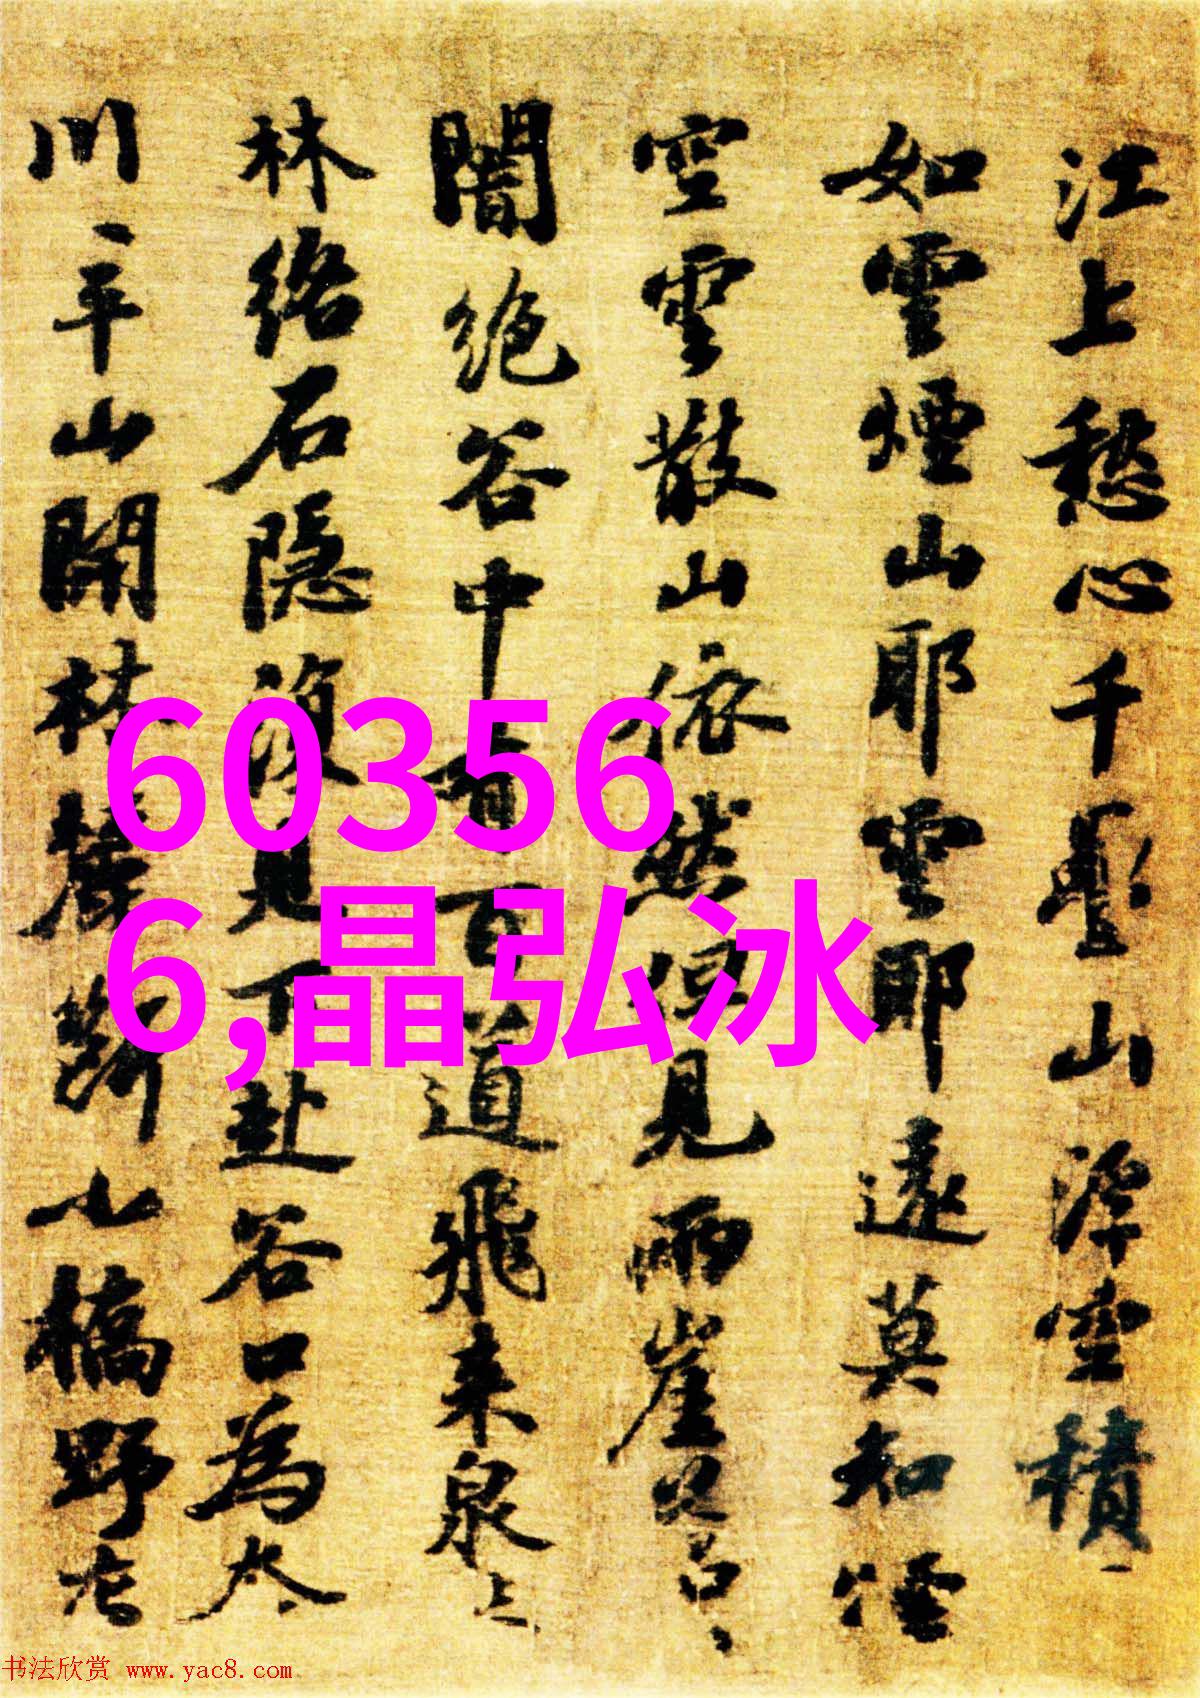 江上愁心千疊山浮空積
如雲煙山耶雲耶遠莫知煙
空雲散山依然但見兩崖蒼
闇絶谷中有百道飛来泉
林絡石隠復見下赴谷口為
川平山開林麓斷小橋野
60356
6,晶弘冰
书法欣赏 www.yac8.com